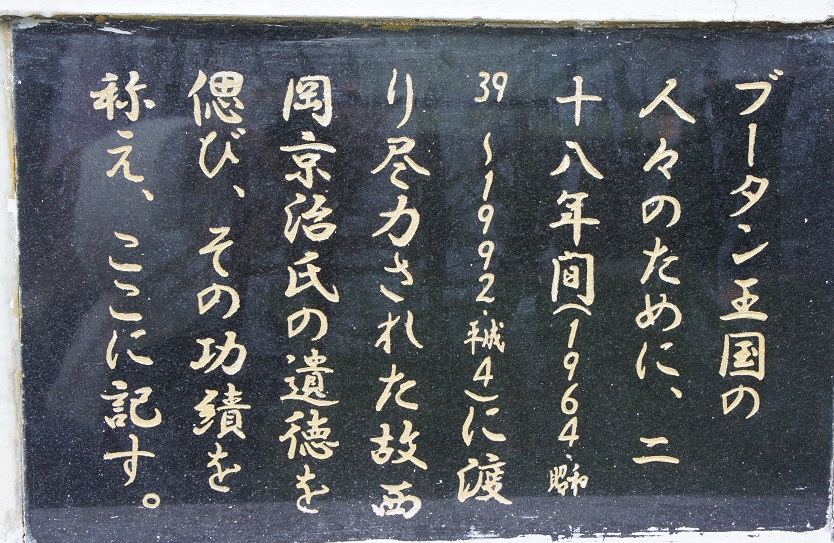 ブータン王国の
人々のために、二
十八年間(1964・昭和
39〜1992・平成4)に渡
り尽力された故西
岡京治氏の遺徳を
偲び、その功績を
称え、ここに記す。